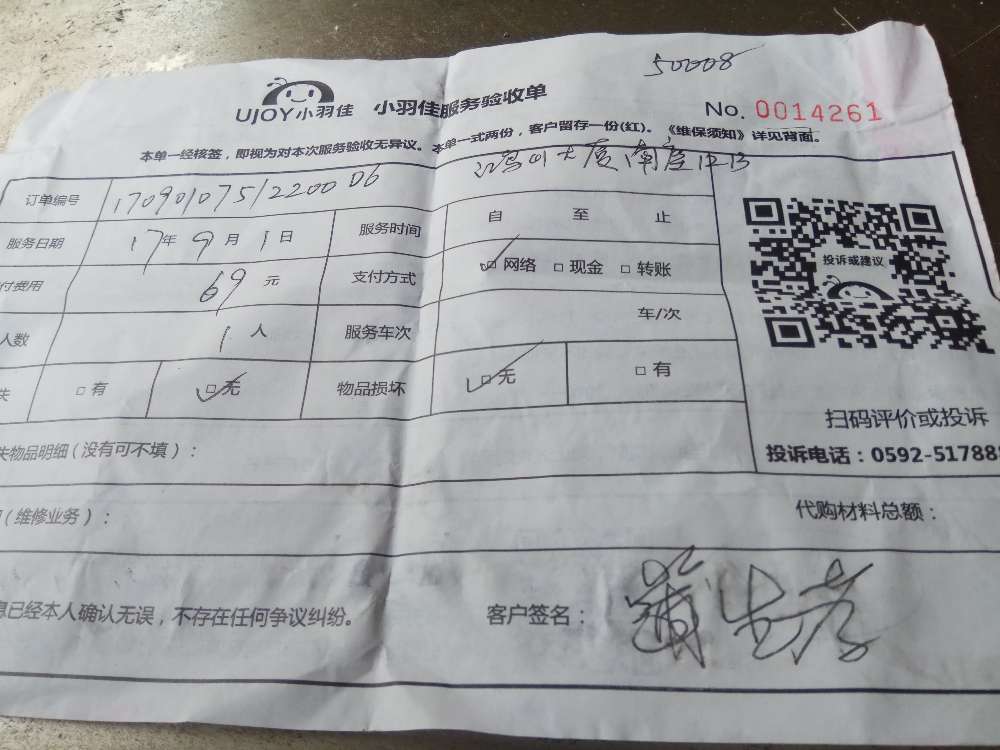 50008
UJOY小羽佳 小羽佳服务验收单
No. 0014261
本单一经核签，即视为对本次服务验收无异议。本单一式两份，客户留存一份(红)。《维保须知》详见背面。
订单编号 17090107512200006 大厦南座1213
服务日期 17年9月1日 服务时间 自 至 止
付费用 69元 支付方式 ☑网络 □现金 □转账
人数 1人 服务车次 车/次
失 □有 ☑无 物品损坏 ☑无 □有
投诉或建议
扫码评价或投诉
投诉电话：0592-517888
失物品明细(没有可不填)：
(维修业务)： 代购材料总额：
息已经本人确认无误，不存在任何争议纠纷。 客户签名：